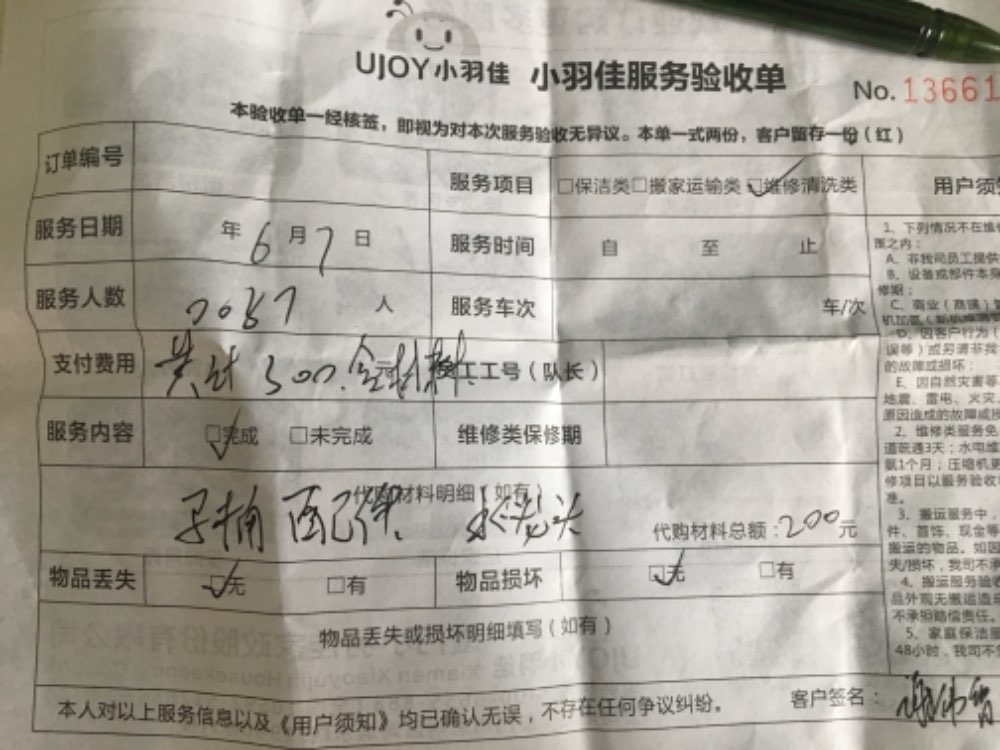 UJOY小羽佳 小羽佳服务验收单
No.13661
本验收单一经核签，即视为对本次服务验收无异议。本单一式两份，客户留存一份（红）
订单编号
服务项目 □保洁类□搬家运输类□维修清洗类
用户须
服务日期 年6月7日
服务时间 自 至 止
服务人数 人
服务车次 车/次
支付费用 共计300.含材料.
工工号（队长）
服务内容 □完成 □未完成
维修类保修期
代购材料明细（如有）
马桶配件 水龙头
代购材料总额：200元
物品丢失 □无 □有
物品损坏 □无 □有
物品丢失或损坏明细填写（如有）
本人对以上服务信息以及《用户须知》均已确认无误，不存在任何争议纠纷。
客户签名：
1、下列情况不在维
围之内：
A、非我司员工提供
B、设备或部件本身
修期；
C、商业（商铺）
D、因客户行为（
误等）或另请非我
的故障或损坏；
E、因自然灾害等
地震、雷电、火灾
原因造成的故障或损
2、维修类服务免
道疏通3天；水电维
氨1个月；压缩机更
修项目以服务验收
准。
3、搬运服务中，
件、首饰、现金等
搬运的物品。如因
失/损坏，我司不承
4、搬运服务验收
品外观无搬运造成
不承担赔偿责任。
5、家庭保洁服
48小时，我司不